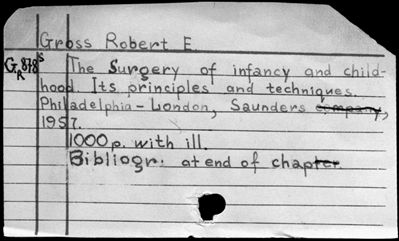 Gross Robert E.
GR 878 s
The Surgery of infancy and child-
hood. Its principles and techniques.
Philadelphia - London, Saunders company,
1957.
1000 p. with ill.
Bibliogr. at end of chapter.